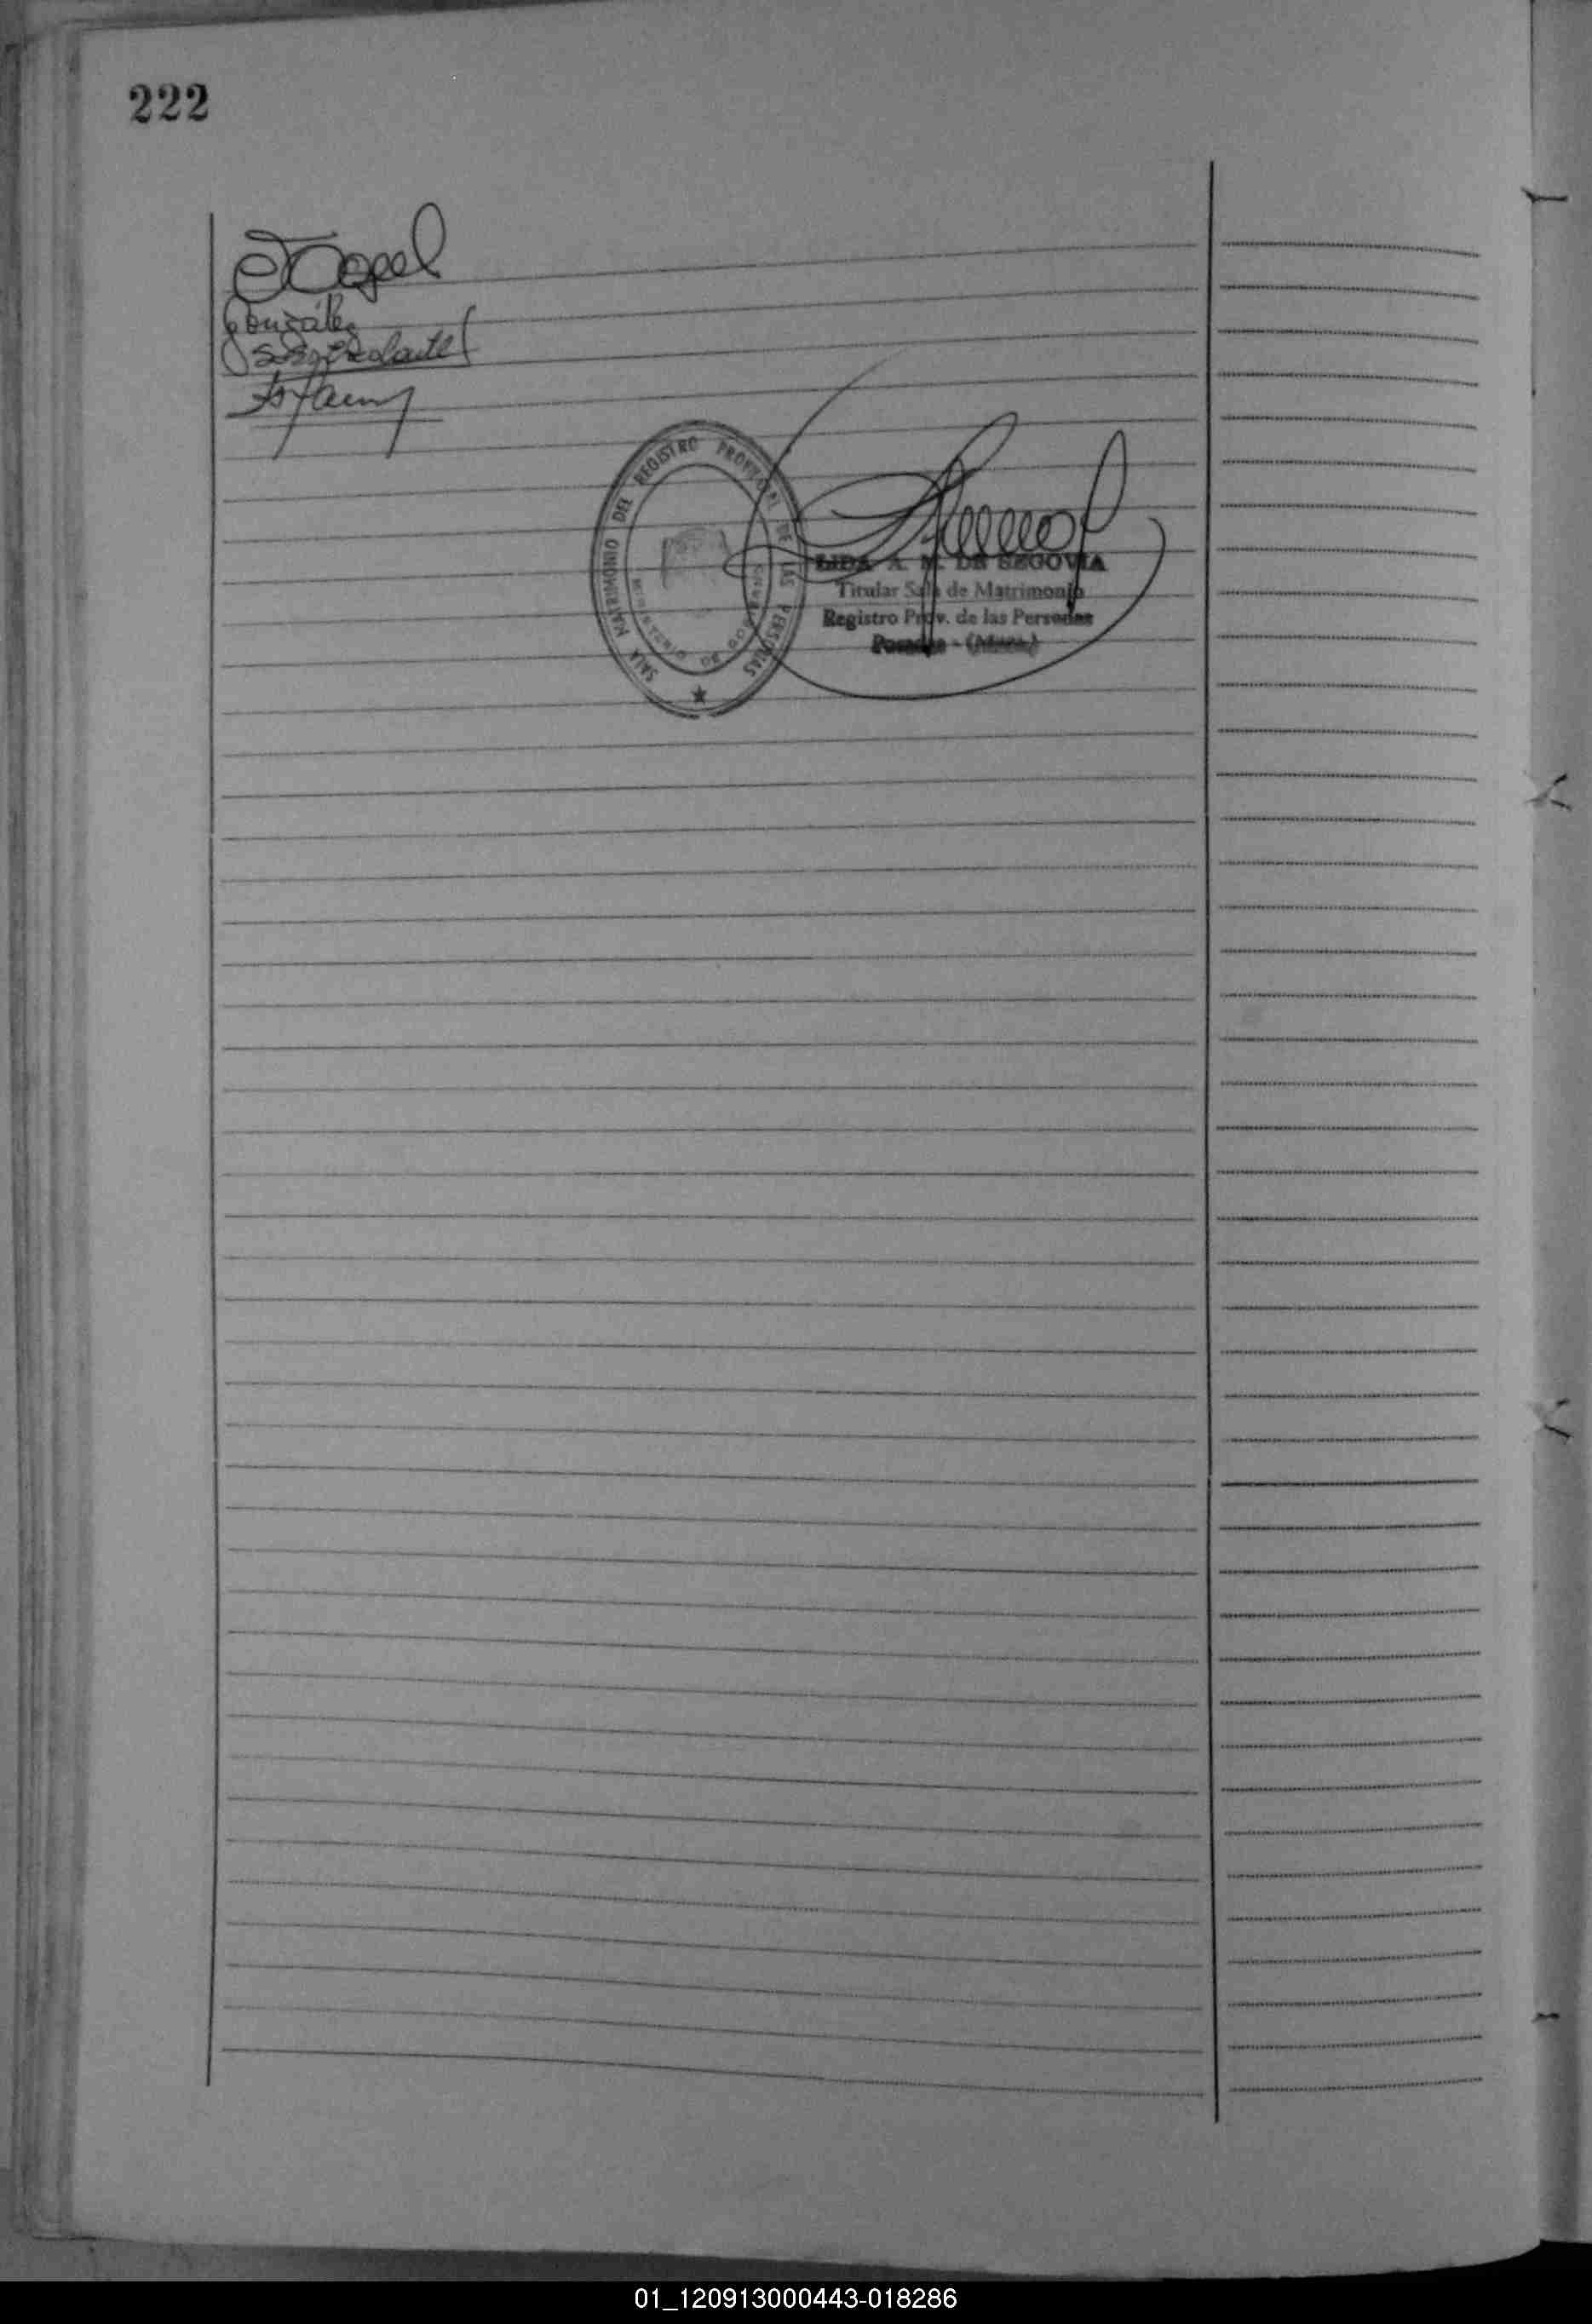 222
González
SALA MATRIMONIO DEL REGISTRO PROVINCIAL DE LAS PERSONAS
MINISTERIO DE GOBIERNO
LIDA A. M. DE SEGOVIA
Titular Sala de Matrimonio
Registro Prov. de las Personas
Posadas - (Mnes.)
01_120913000443-018286